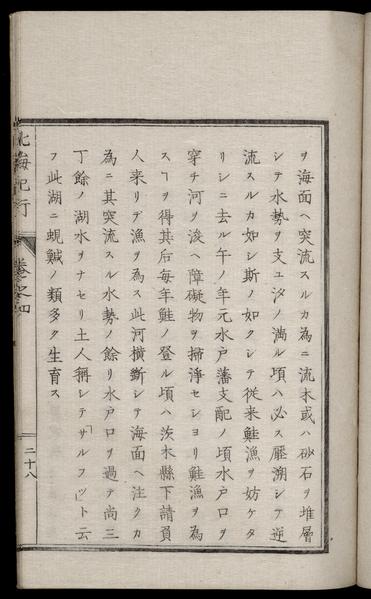 ヲ海面ヘ突流スルカ為ニ流木或ハ砂石ヲ堆層
シテ水勢ヲ支ユ汐ノ満ル頃ハ必ス壓溯シテ逆
流スルカ如シ斯ノ如クシテ従来鮭漁ヲ妨ケタ
リシニ去ル午ノ年元水戸藩支配ノ頃水戸口ヲ
穿チ河ヲ浚ヘ障礙物ヲ掃淨セシヨリ鮭漁ヲ為
スヿヲ得其后毎年鮭ノ登ル頃ハ茨木縣下請負
人来リテ漁ヲ為ス此河横斷シテ海面ヘ注クカ
為ニ其突流スル水勢ノ餘リ水戸口ヲ過テ尚三
丁餘ノ湖水ヲナセリ土人稱シテ「サルフツ」ト云
フ此湖ニ蜆鰔ノ類多ク生育ス
北海紀行
巻之四
二十八